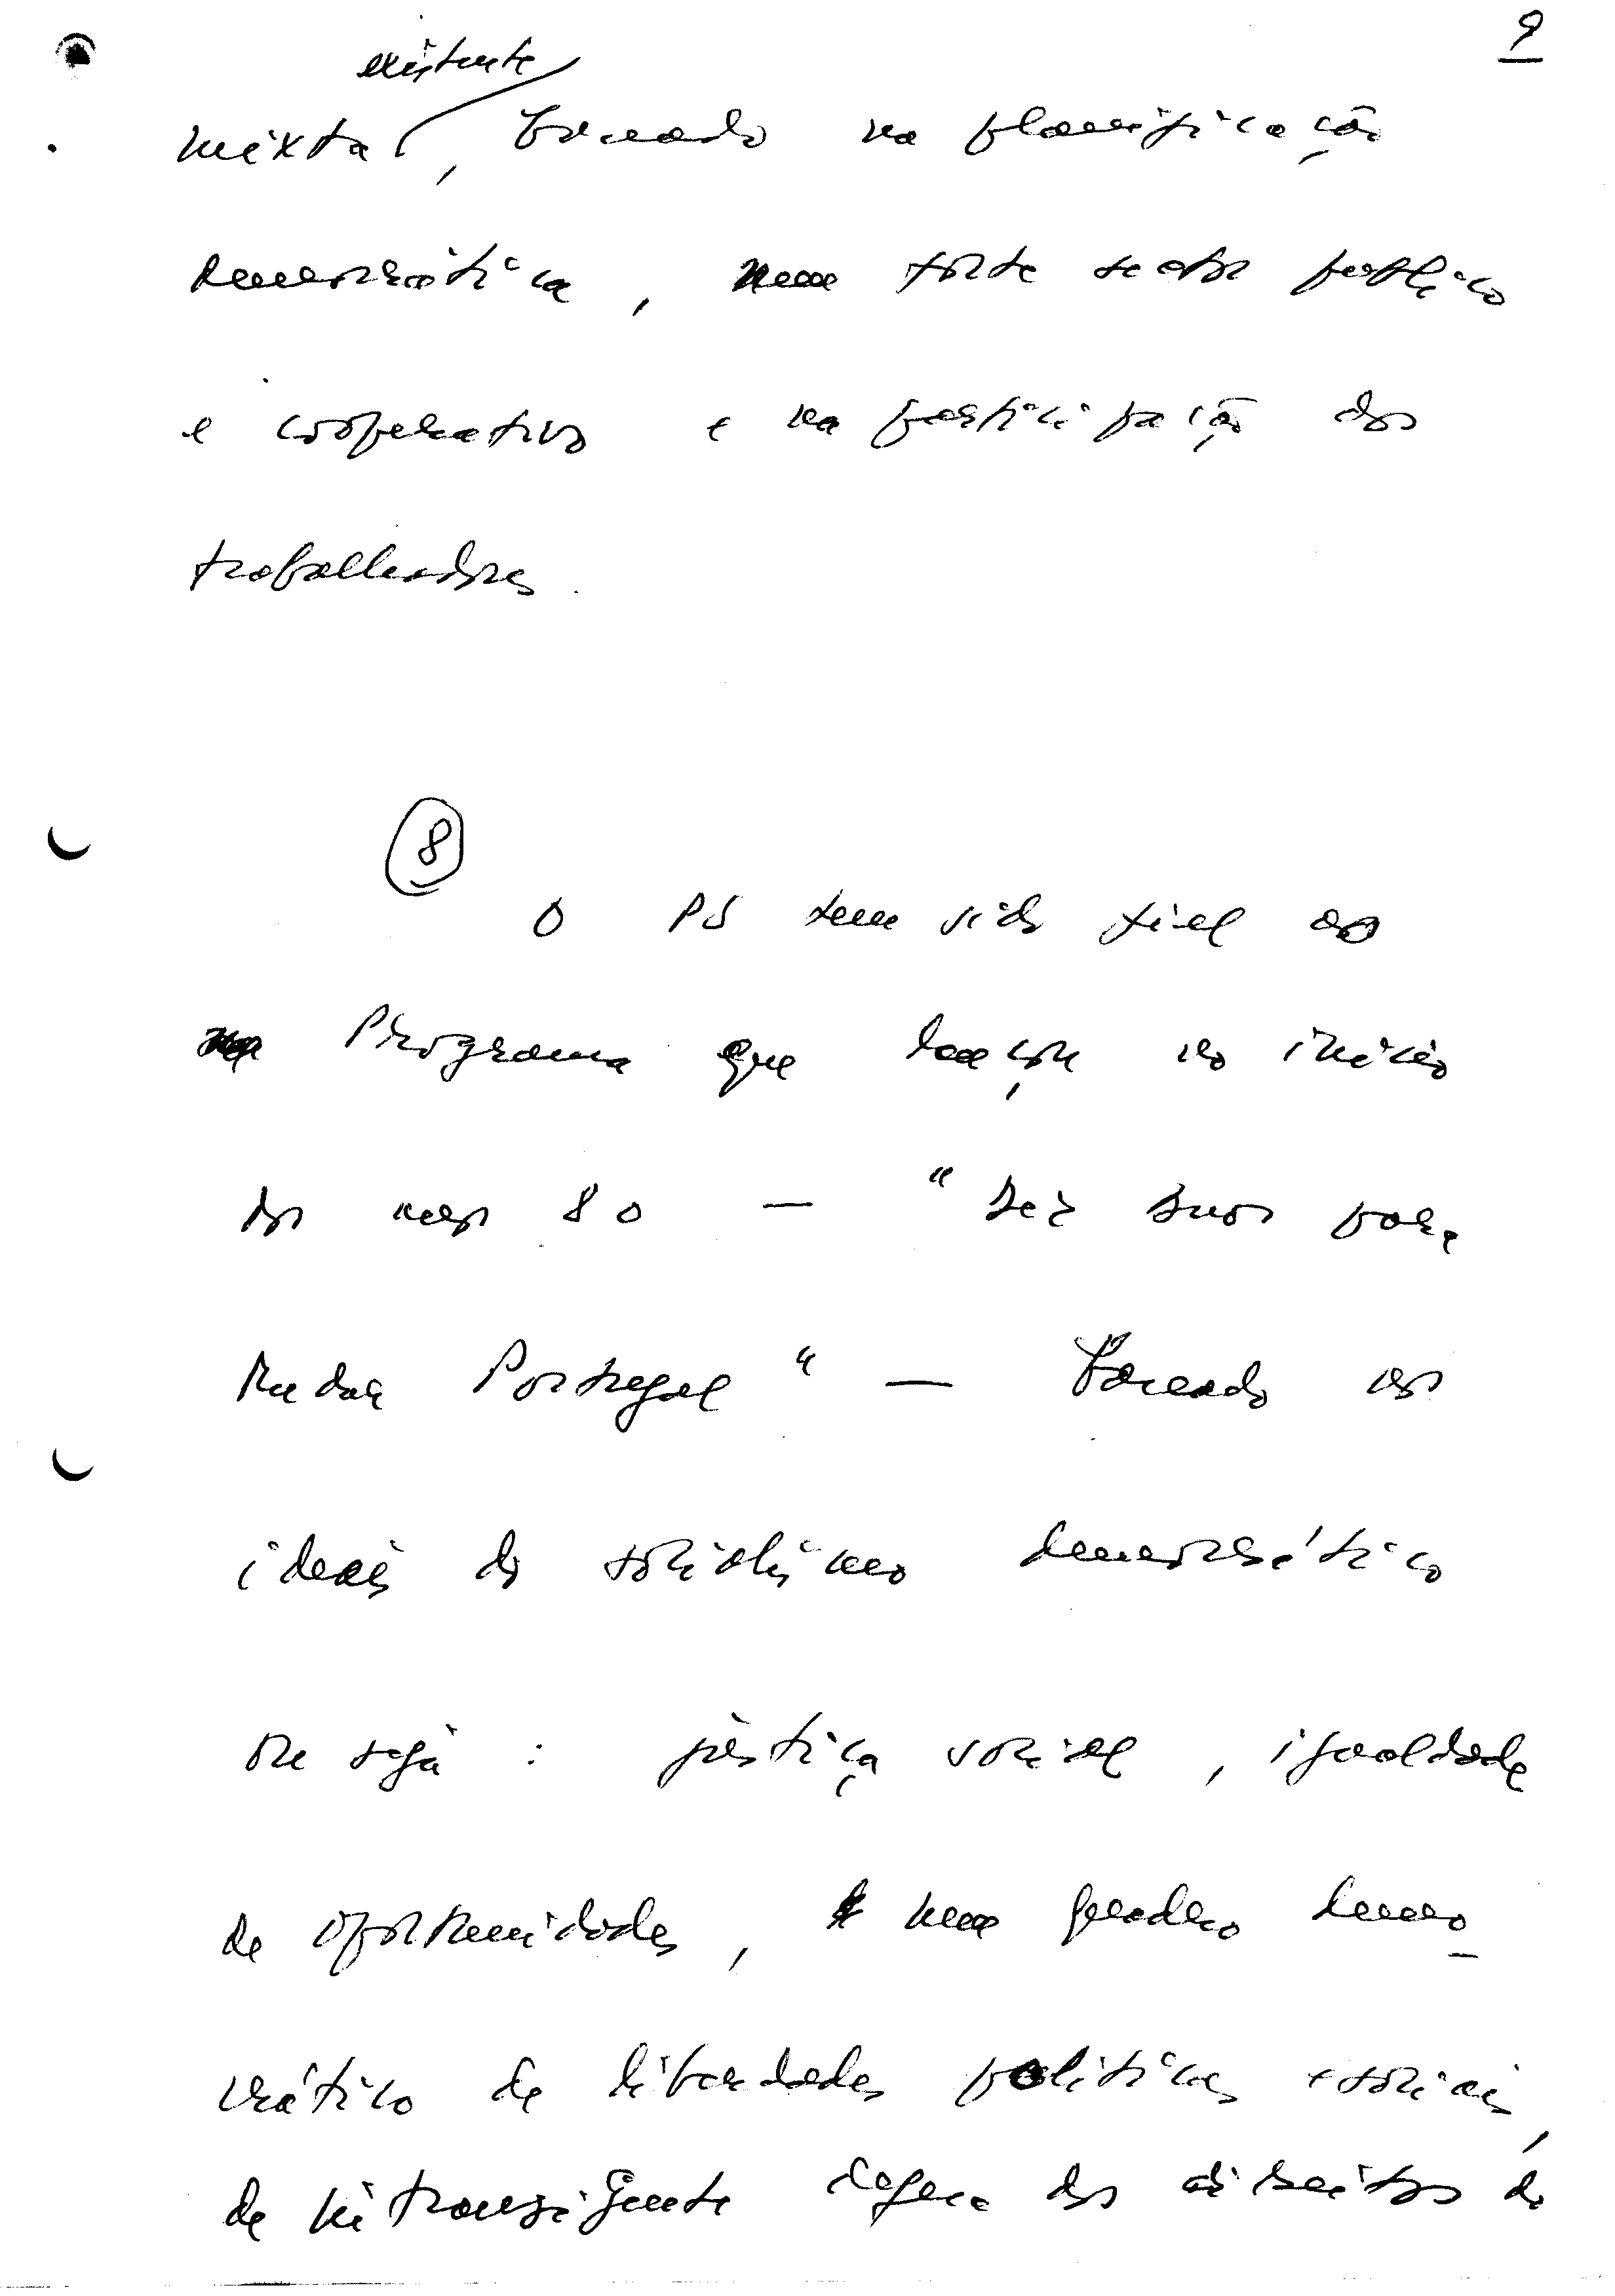 9
existente
mixta, baseado na planificação
democrática, num forte sector público
e cooperativo e na participação dos
trabalhadores.
8
O PS tem sido fiel ao
Programa que lançou no início
dos anos 80 — "Dez Anos para
Mudar Portugal" — baseado nos
ideais do socialismo democrático
ou seja : justiça social, igualdade
de oportunidades, num quadro demo-
crático de liberdades políticas e sociais,
de intransigente defesa dos direitos do